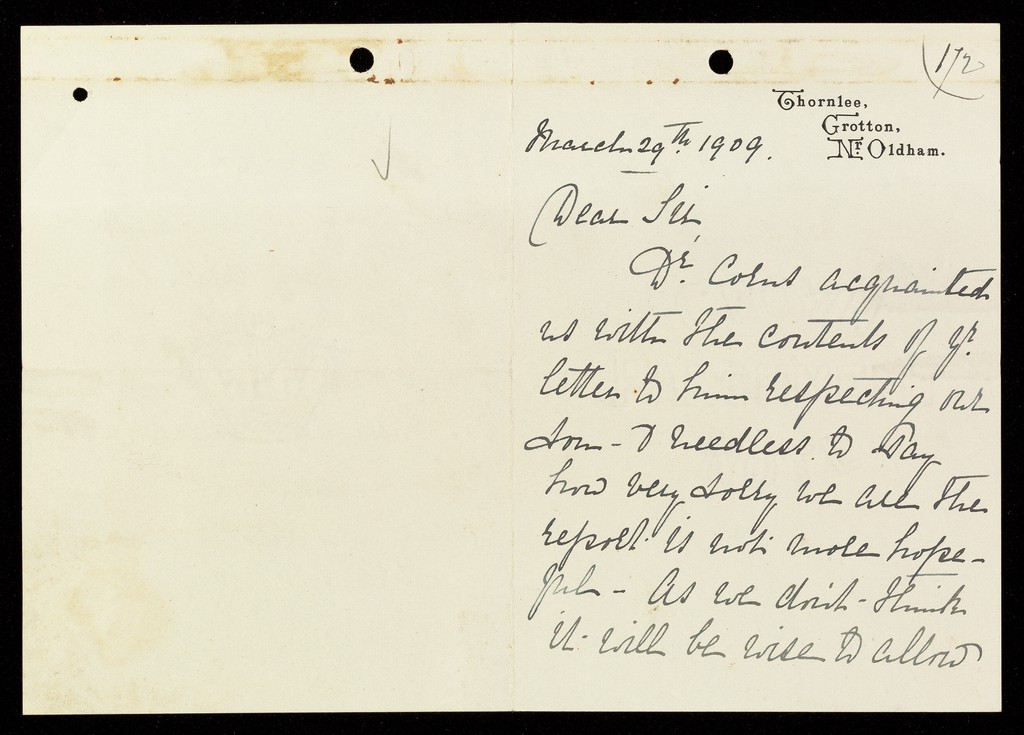 172
Thornlee,
Grotton,
Nr. Oldham.
March 29th. 1909.
Dear Sir
Dr. acquainted
us with the contents of yr.
letter to him respecting our
son - & needless to say
how very sorry we are the
report is not more hope-
ful - As we don't think
it will be wise to allow